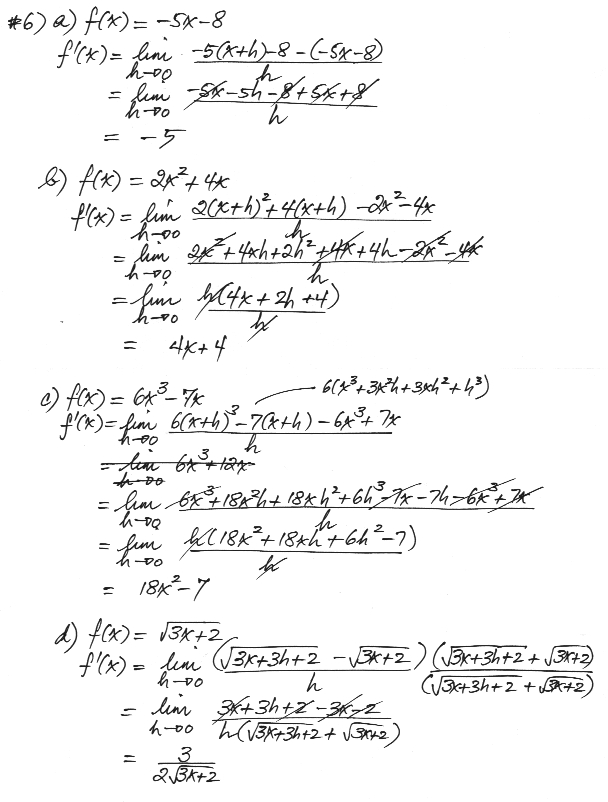 #6) a) f(x) = -5x-8
f'(x) = lim h→0 (-5(x+h)-8-(-5x-8))/h
= lim h→0 (-5x-5h-8+5x+8)/h
= -5
b) f(x) = 2x²+4x
f'(x) = lim h→0 (2(x+h)²+4(x+h)-2x²-4x)/h
= lim h→0 (2x²+4xh+2h²+4x+4h-2x²-4x)/h
= lim h→0 h(4x+2h+4)/h
= 4x+4
c) f(x) = 6x³-7x
6(x³+3x²h+3xh²+h³)
f'(x) = lim h→0 (6(x+h)³-7(x+h)-6x³+7x)/h
= lim h→0 6x³+12x
= lim h→0 (6x³+18x²h+18xh²+6h³-7x-7h-6x³+7x)/h
= lim h→0 h(18x²+18xh+6h²-7)/h
= 18x²-7
d) f(x) = √(3x+2)
f'(x) = lim h→0 (√(3x+3h+2) - √(3x+2))/h (√(3x+3h+2) + √(3x+2))/(√(3x+3h+2) + √(3x+2))
= lim h→0 (3x+3h+2-3x-2)/(h(√(3x+3h+2) + √(3x+2)))
= 3/(2√(3x+2))